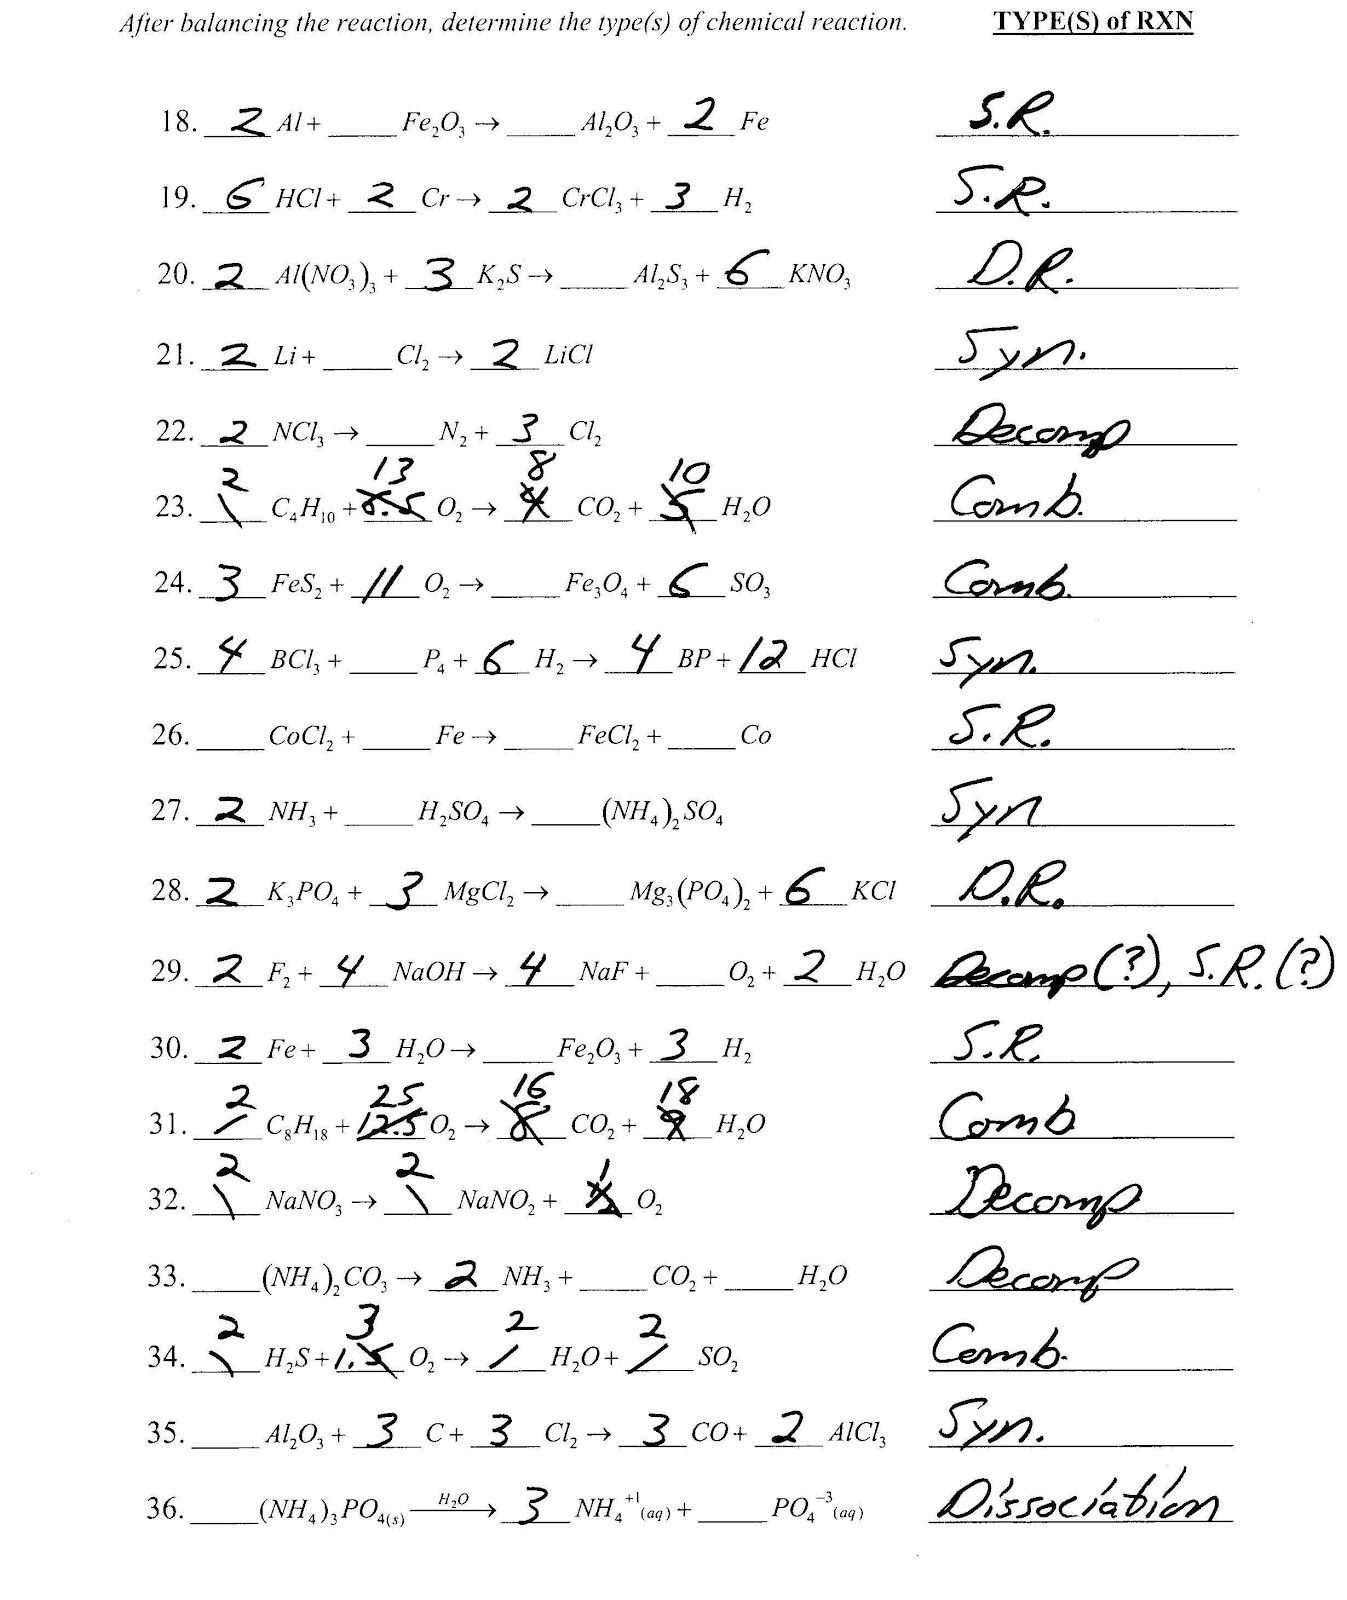 After balancing the reaction, determine the type(s) of chemical reaction. TYPE(S) of RXN
18. 2 Al + ____ Fe₂O₃ → ____ Al₂O₃ + 2 Fe S.R.
19. 6 HCl + 2 Cr → 2 CrCl₃ + 3 H₂ S.R.
20. 2 Al(NO₃)₃ + 3 K₂S → ____ Al₂S₃ + 6 KNO₃ D.R.
21. 2 Li + ____ Cl₂ → 2 LiCl Syn.
22. 2 NCl₃ → ____ N₂ + 3 Cl₂ Decomp
2 13 8 10
23. 1 C₄H₁₀ + 6.5 O₂ → 4 CO₂ + 5 H₂O Comb.
24. 3 FeS₂ + 11 O₂ → ____ Fe₃O₄ + 6 SO₃ Comb.
25. 4 BCl₃ + ____ P₄ + 6 H₂ → 4 BP + 12 HCl Syn.
26. ____ CoCl₂ + ____ Fe → ____ FeCl₂ + ____ Co S.R.
27. 2 NH₃ + ____ H₂SO₄ → ____ (NH₄)₂SO₄ Syn
28. 2 K₃PO₄ + 3 MgCl₂ → ____ Mg₃(PO₄)₂ + 6 KCl D.R.
29. 2 F₂ + 4 NaOH → 4 NaF + ____ O₂ + 2 H₂O Decomp(?), S.R.(?)
30. 2 Fe + 3 H₂O → ____ Fe₂O₃ + 3 H₂ S.R.
2 25 16 18
31. 1 C₈H₁₈ + 12.5 O₂ → 8 CO₂ + 9 H₂O Comb
2 2 1
32. 1 NaNO₃ → 1 NaNO₂ + ½ O₂ Decomp
33. ____ (NH₄)₂CO₃ → 2 NH₃ + ____ CO₂ + ____ H₂O Decomp
2 3 2 2
34. 1 H₂S + 1.5 O₂ → 1 H₂O + 1 SO₂ Comb.
35. ____ Al₂O₃ + 3 C + 3 Cl₂ → 3 CO + 2 AlCl₃ Syn.
36. ____ (NH₄)₃PO₄(s) H₂O → 3 NH₄⁺¹(aq) + ____ PO₄⁻³(aq) Dissociation